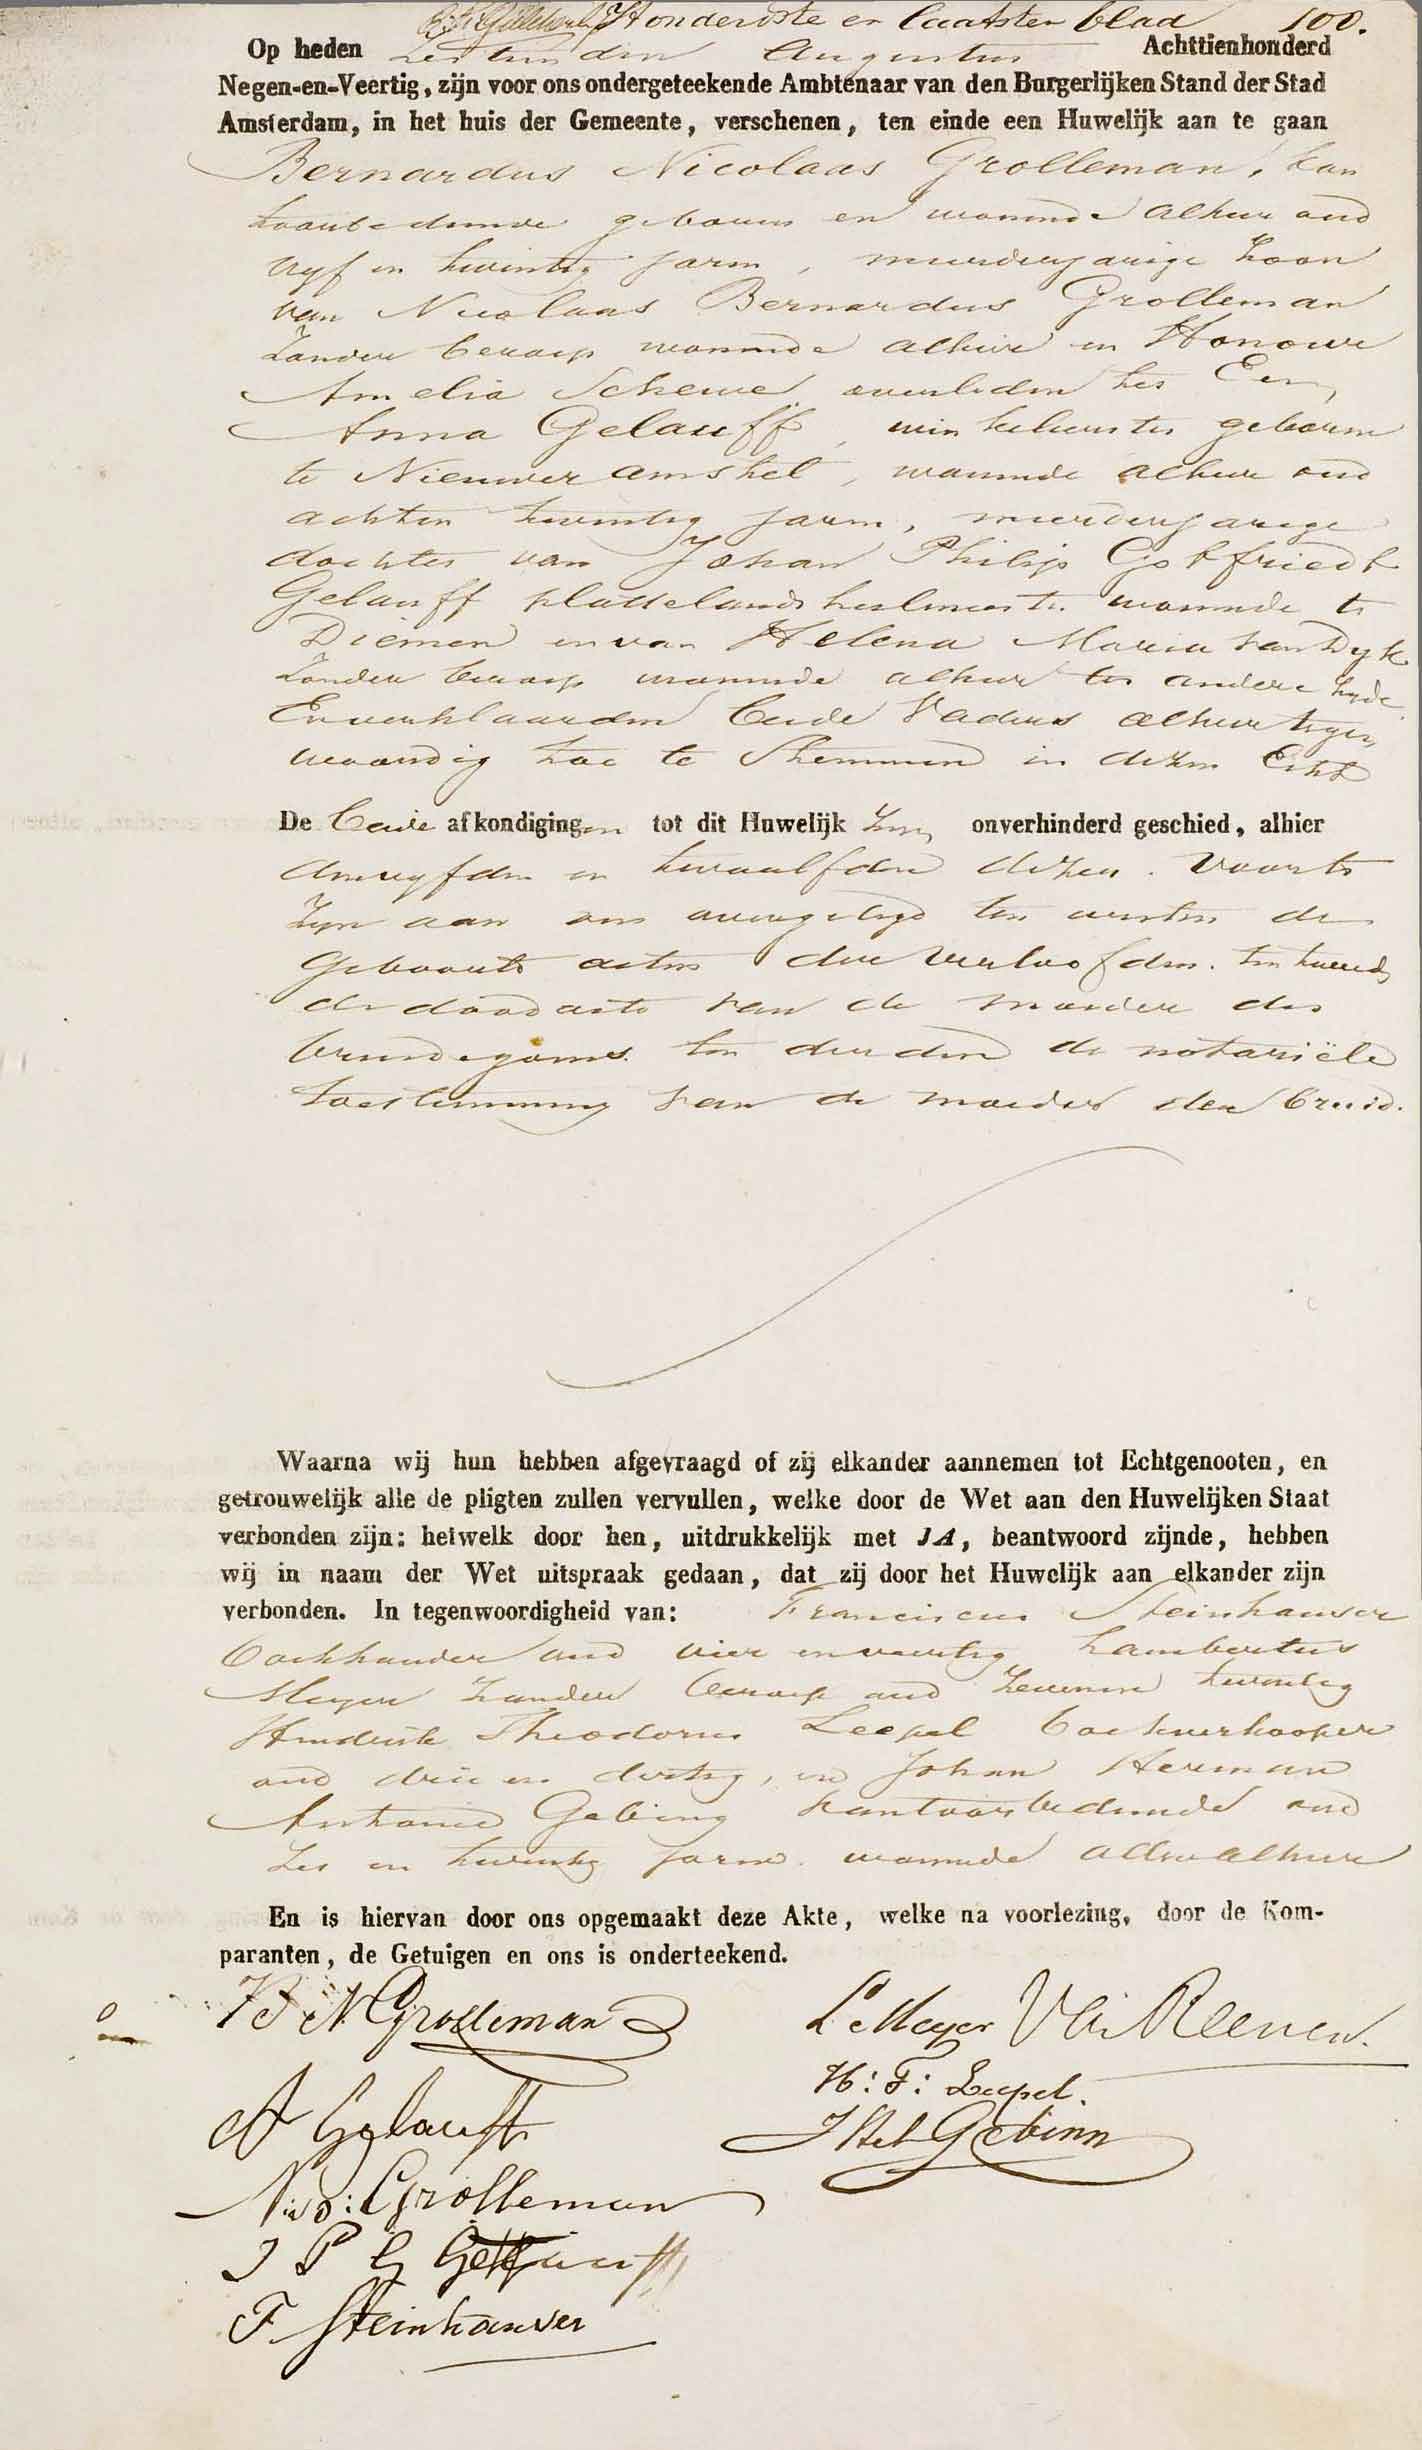 Honderdste en laatsten blad 100.
Op heden Zestienden Augustus Achttienhonderd
Negen-en-Veertig, zijn voor ons ondergeteekende Ambtenaar van den Burgerlijken Stand der Stad
Amsterdam, in het huis der Gemeente, verschenen, ten einde een Huwelijk aan te gaan
Bernardus Nicolaas Grolleman, kan
toorbediende geboren en wonende alhier oud
vyf en twintig jaren, meerderjarige Zoon
van Nicolaas Bernardus Grolleman
Zonder beroep wonende alhier en Honoure
Amelia Scheue overleden ter Eenre
Anna Gelauff, winkelierster geboren
te Nieuwer amstel, wonende alhier oud
acht en twintig jaren, meerderjarige
dochter van Johan Philip Gotfriedt
Gelauff plattelands heelmeester wonende te
Diemen en van Helena Maria van Dyk
Zonder beroep wonende alhier ter andere Zyde
En verklaarden beide Vaders alhier tegen
woordig toe te Stemmen in dezen Echt
De beide afkondigingen tot dit Huwelijk Zyn onverhinderd geschied, alhier
den vyfden en twaalfden dezer. Voorts
Zyn aan ons overgelegd ten eersten de
Geboorte acten der Verloofden. ten tweede
de dood acte van de moeder des
bruidegoms. ten derden de notariële
toestemming van de moeder der bruid.
Waarna wij hun hebben afgevraagd of zij elkander aannemen tot Echtgenooten, en
getrouwelijk alle de pligten zullen vervullen, welke door de Wet aan den Huwelijken Staat
verbonden zijn: hetwelk door hen, uitdrukkelijk met JA, beantwoord zijnde, hebben
wij in naam der Wet uitspraak gedaan, dat zij door het Huwelijk aan elkander zijn
verbonden. In tegenwoordigheid van: Franciscus Steinhauser
boekhouder oud vier en veertig Lambertus
Meyer Zonder beroep oud Zeven en twintig
Hendrik Theodorus Leepel boekverkooper
oud drie en dertig, en Johan Herman
Antonie Gebing kantoorbediende oud
Zes en twintig jaren. wonende allen alhier
En is hiervan door ons opgemaakt deze Akte, welke na voorlezing, door de Kom-
paranten, de Getuigen en ons is onderteekend.
B N Grolleman L Meyer
A Gelauff H: T: Leepel.
N: B: Grolleman
J P G Gelauff
F Steinhauser